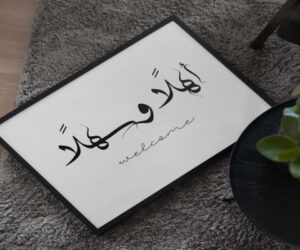 أهلًا وسهلًا
welcome